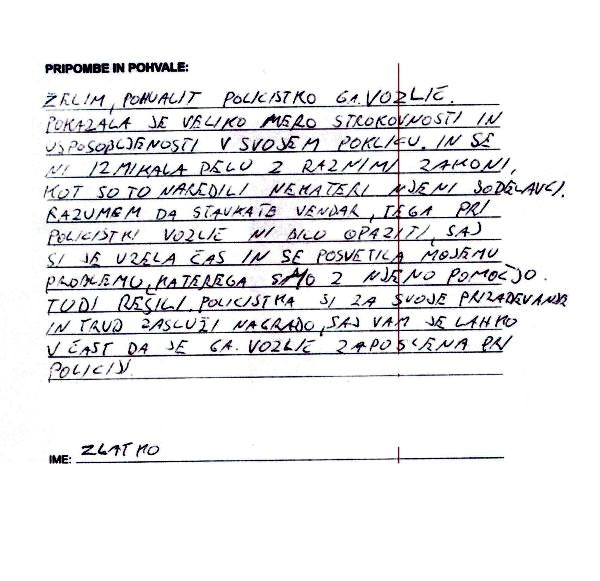 PRIPOMBE IN POHVALE:
ŽELIM, POHVALIT POLICISTKO GA. VOZLIČ.
POKAZALA JE VELIKO MERO STROKOVNOSTI IN
USPOSOBLJENOSTI V SVOJEM POKLICU. IN SE
NI IZMIKALA DELU Z RAZNIMI ZAKONI,
KOT SO TO NAREDILI NEKATERI NJENI SODELAVCI.
RAZUMEM DA STAVKATE VENDAR, TEGA PRI
POLICISTKI VOZLIČ NI BILO OPAZITI, SAJ
SI JE VZELA ČAS IN SE POSVETILA MOJEMU
PROBLEMU, KATEREGA SMO Z NJENO POMOČJO.
TUDI REŠILI. POLICISTKA SI ZA SVOJE PRIZADEVANJA
IN TRUD ZASLUŽI NAGRADO, SAJ VAM JE LAHKO
V ČAST DA JE GA. VOZLIČ ZAPOSLENA PRI
POLICIJI.
IME: ZLATKO